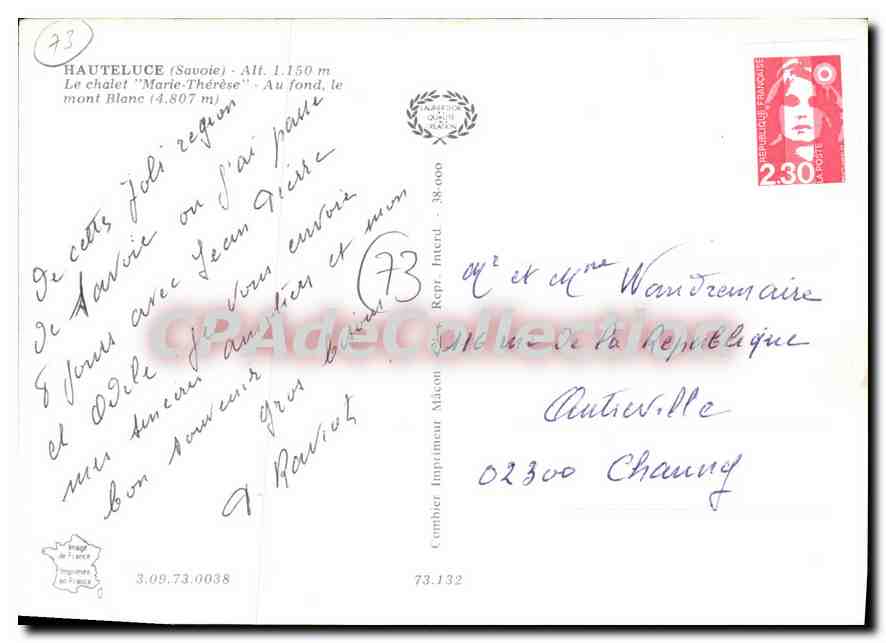 73
HAUTELUCE (Savoie) - Alt. 1.150 m
Le chalet "Marie-Thérèse" - Au fond, le
mont Blanc (4.807 m)
De cette Joli region
de Savoie ou J'ai passe
8 Jours avec Jean Pierre
et Odile Je vous envoie
mes sincères amitiés et mon
bon souvenir
gros baisers
Raviot
73
Image
de France
Imprimée
en France
3.09.73.0038
73.132
LABEUR D'OR
QUALITÉ
CRÉATION
Combier Imprimeur Mâcon Repr. Interd. - 38-000
RÉPUBLIQUE FRANÇAISE
2.30
LA POSTE
Mr et Mme Wandremaire
116 rue de la République
Autreville
02300 Chauny
CPAdeCollection